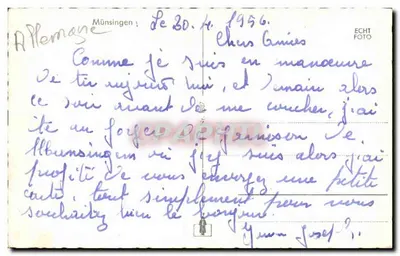 Allemagne
Münsingen :
Le 20.4.1956.
ECHT
FOTO
Chers Amies
Comme je suis en manœuvre
de tir aujourd'hui, et demain alors
ce soir avant de me coucher, j'ai
été au foyer de garnison de
Munsingen où j'y suis alors j'ai
profité de vous envoyez une petite
carte, tout simplement pour vous
souhaitez bien le bonjour.